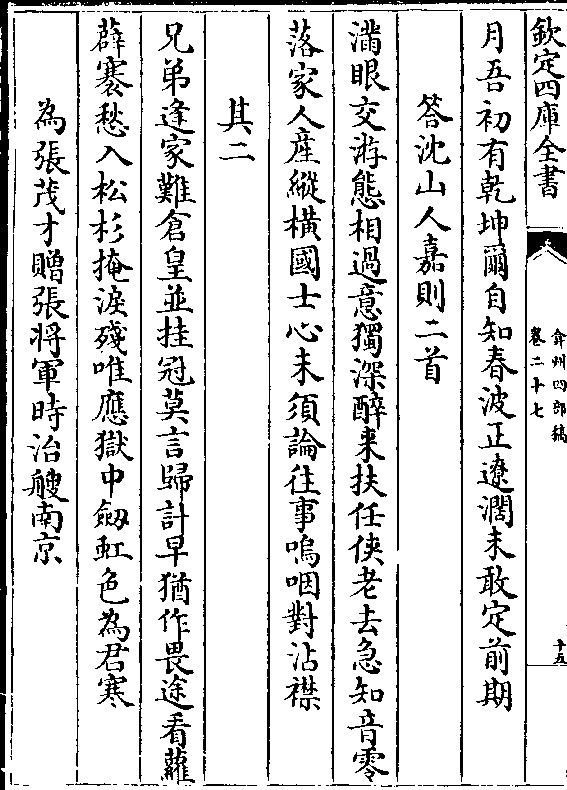 欽定四庫全書
弇州四部稿
卷二十七
十五
月吾初有乾坤爾自知春波正遼濶未敢定前期
答沈山人嘉則二首
滿眼交游態相過意獨深醉来扶任俠老去急知音零
落家人產縱横國士心未須論往事嗚咽對沾襟
其二
兄弟逢家難倉皇並挂冠莫言歸計早猶作畏途看蘿
薜褰愁入松杉掩淚殘唯應獄中劒虹色為君寒
為張茂才贈張將軍時治艘南京